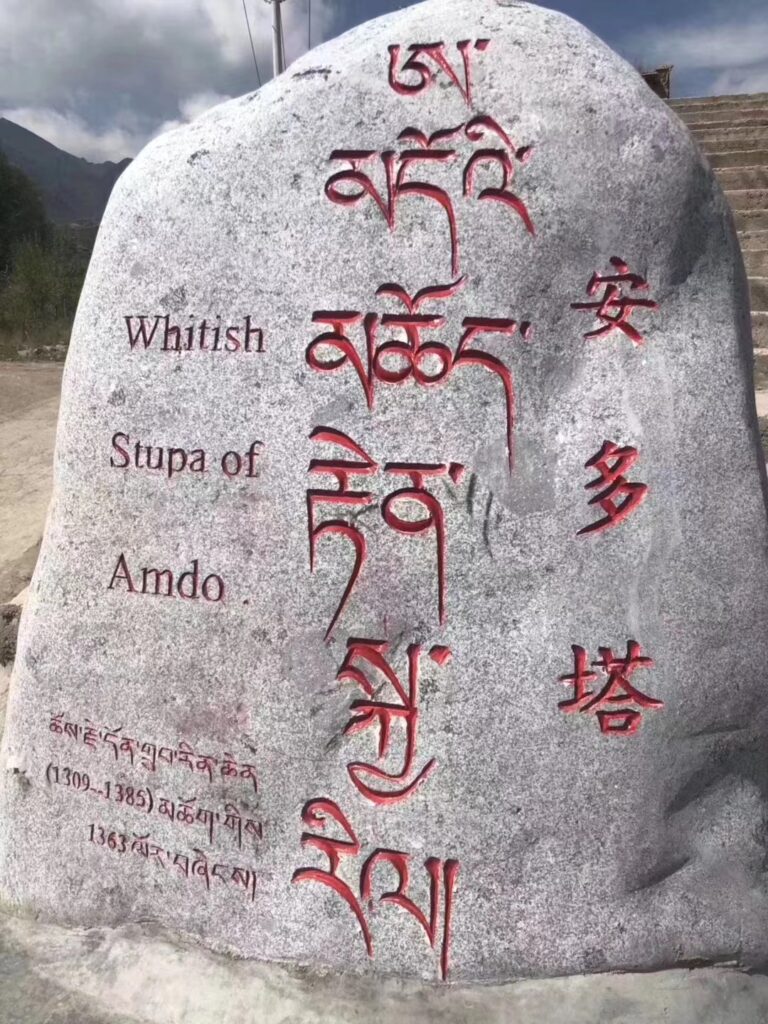 ཨ་
མདོའི་
མཆོད་
རྟེན་
སྐྱ་
རིལ།
Whitish
Stupa of
Amdo
安
多
塔
ཆོས་རྗེ་དོན་གྲུབ་རིན་ཆེན
(1309--1385) མཆོག་གིས
1363 ལོར་བཞེངས།